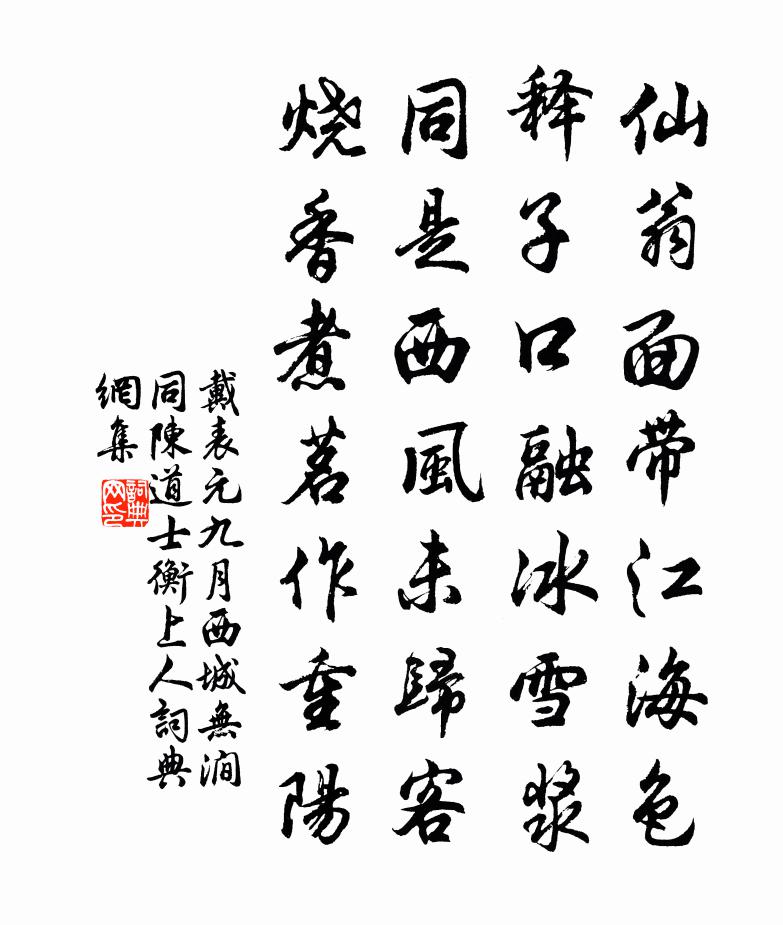 仙翁面带江海色
释子口融冰雪浆
同是西風未歸客
烧香煮茗作重陽
戴表元九月西城無澗
同陳道士衡上人詞典
網集
詞典
网印